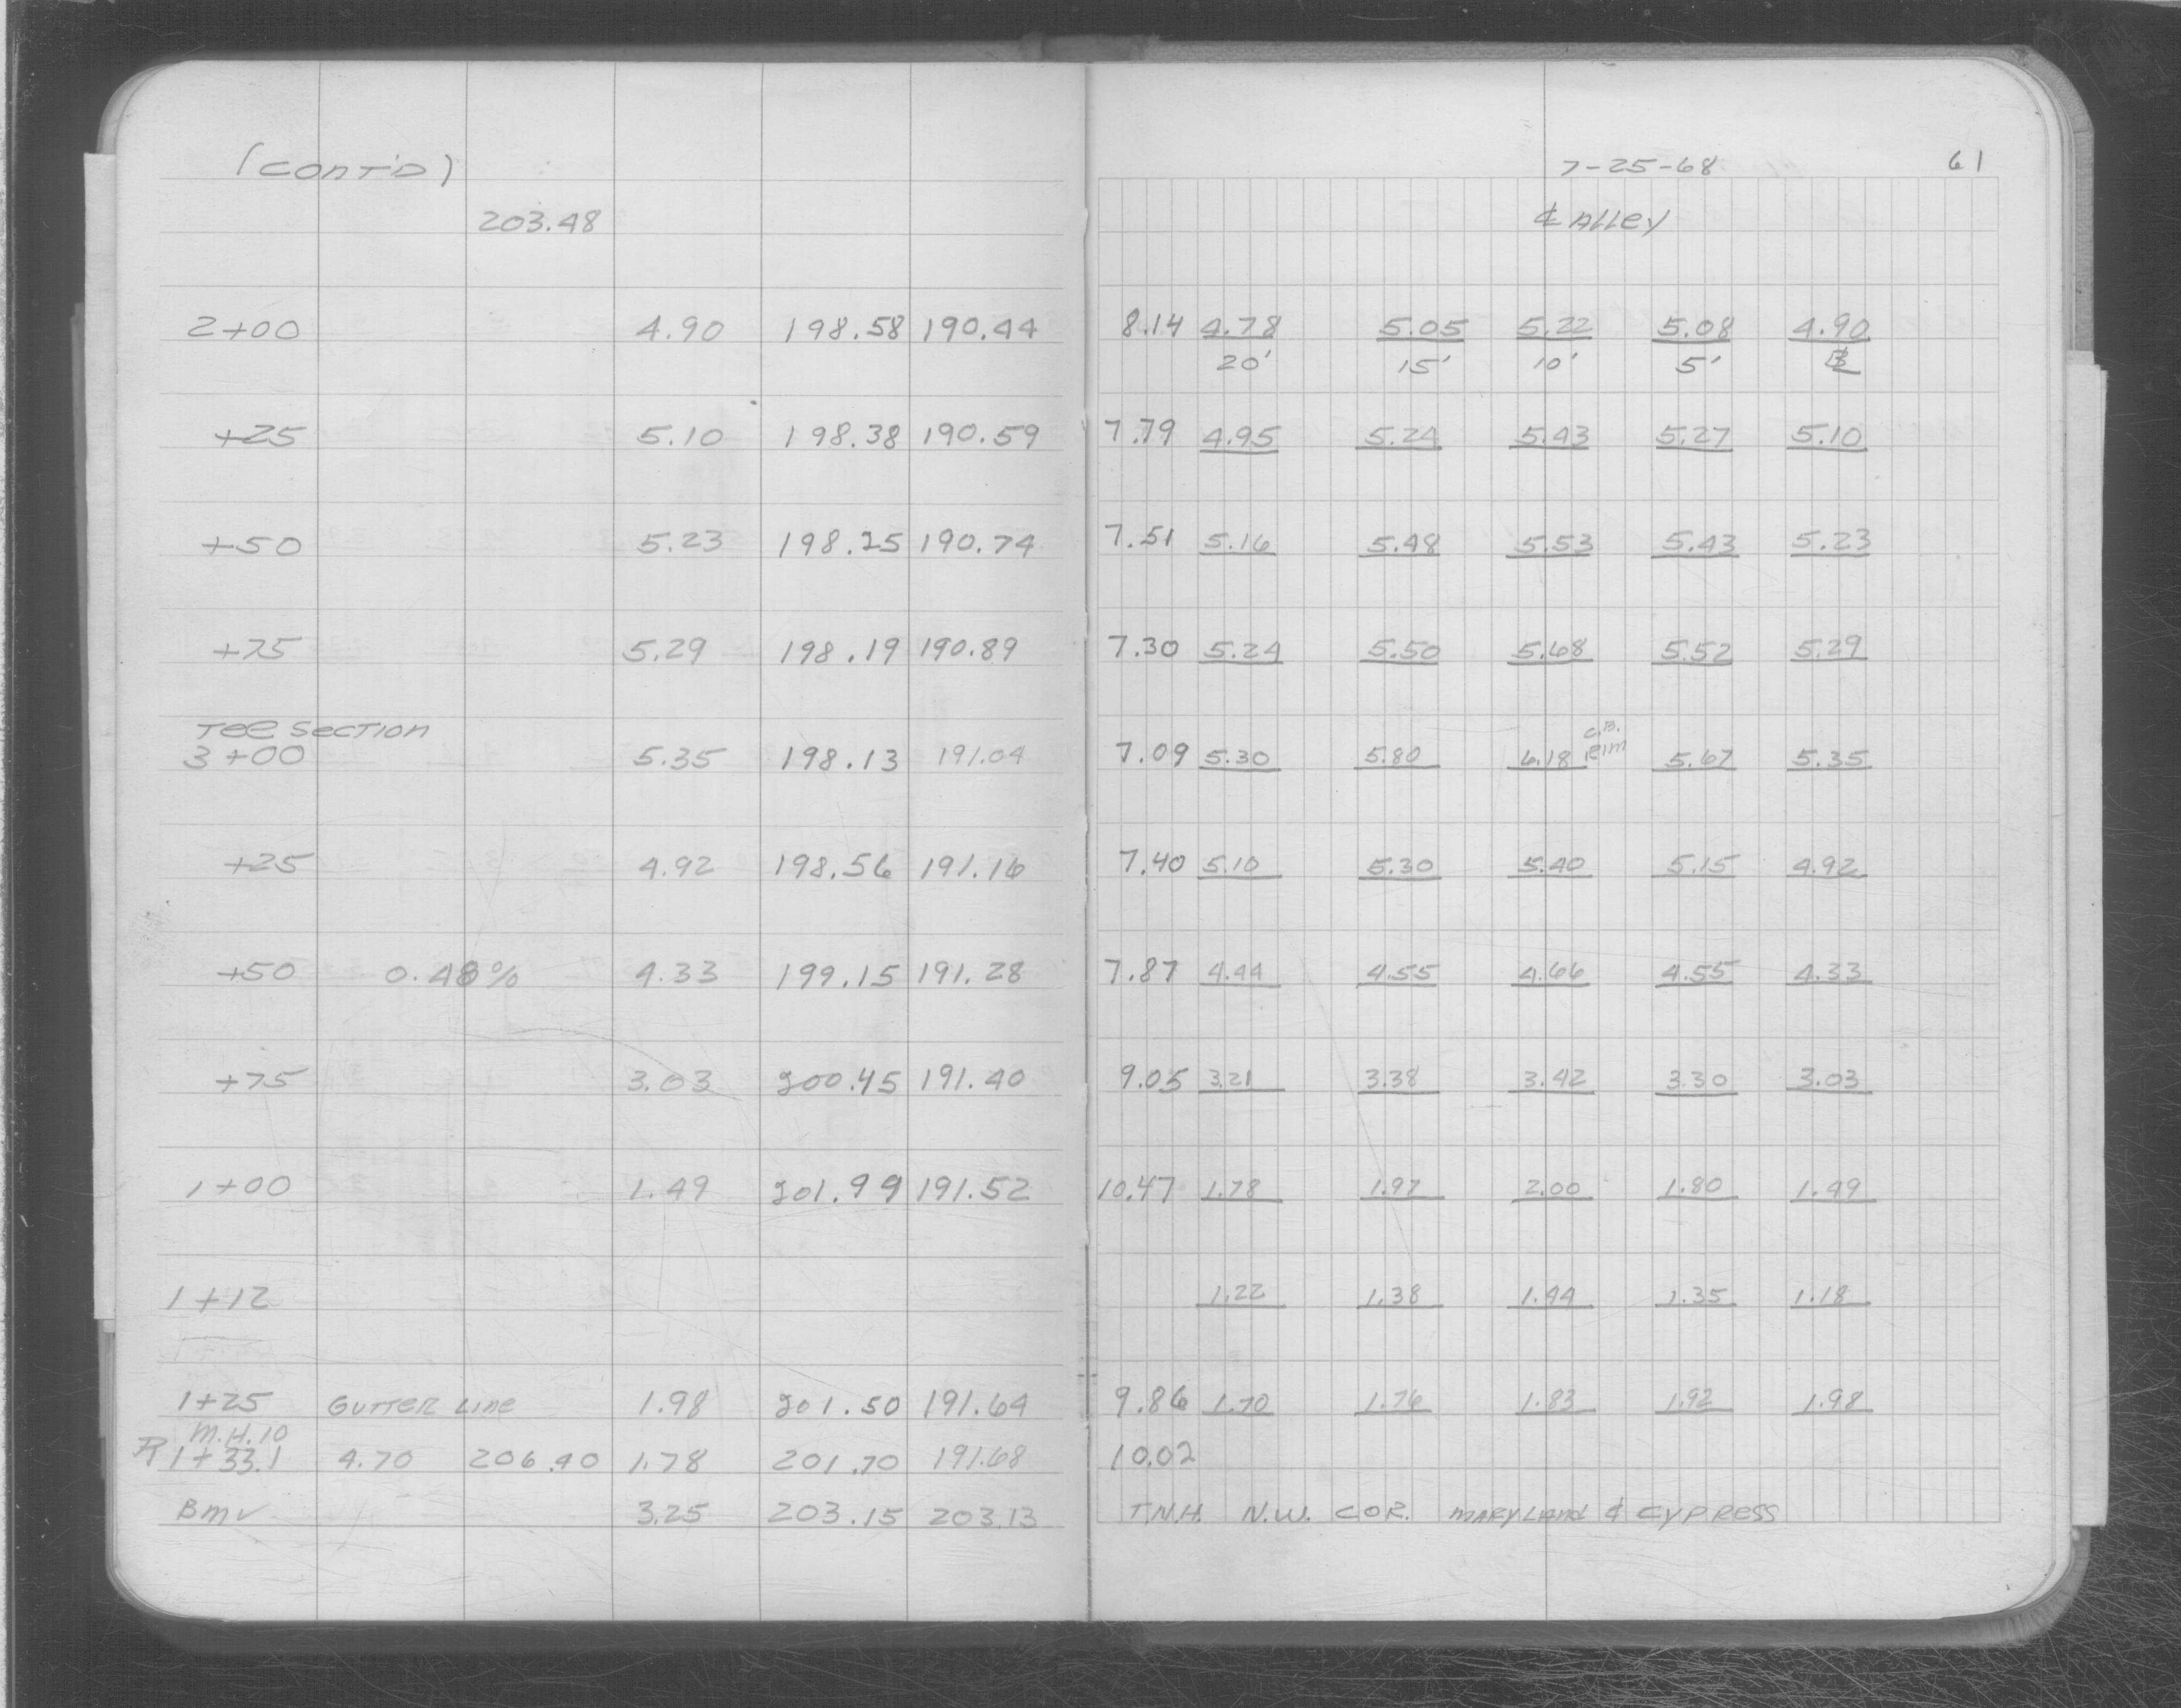 (CONT'D) 7-25-68 61
203.48 ℄ ALLEY
2+00 4.90 198.58 190.44 8.14 4.78 5.05 5.22 5.08 4.90
20' 15' 10' 5'
+25 5.10 198.38 190.59 7.79 4.95 5.24 5.43 5.27 5.10
+50 5.23 198.25 190.74 7.51 5.16 5.48 5.53 5.43 5.23
+75 5.29 198.19 190.89 7.30 5.24 5.50 5.68 5.52 5.29
Tee Section C.B.
3+00 5.35 198.13 191.04 7.09 5.30 5.80 6.18 RIM 5.67 5.35
+25 4.92 198.56 191.16 7.40 5.10 5.30 5.40 5.15 4.92
+50 0.48% 4.33 199.15 191.28 7.87 4.44 4.55 4.66 4.55 4.33
+75 3.03 200.45 191.40 9.05 3.21 3.38 3.42 3.30 3.03
1+00 1.49 201.99 191.52 10.47 1.78 1.97 2.00 1.80 1.49
1+12 1.22 1.38 1.44 1.35 1.18
1+25 GUTTER LINE 1.98 201.50 191.64 9.86 1.70 1.76 1.83 1.92 1.98
M.H.10
1+33.1 4.70 206.40 1.78 201.70 191.68 10.02
BM✓ 3.25 203.15 203.13 T.N.H. N.W. COR. MARYLAND & CYPRESS